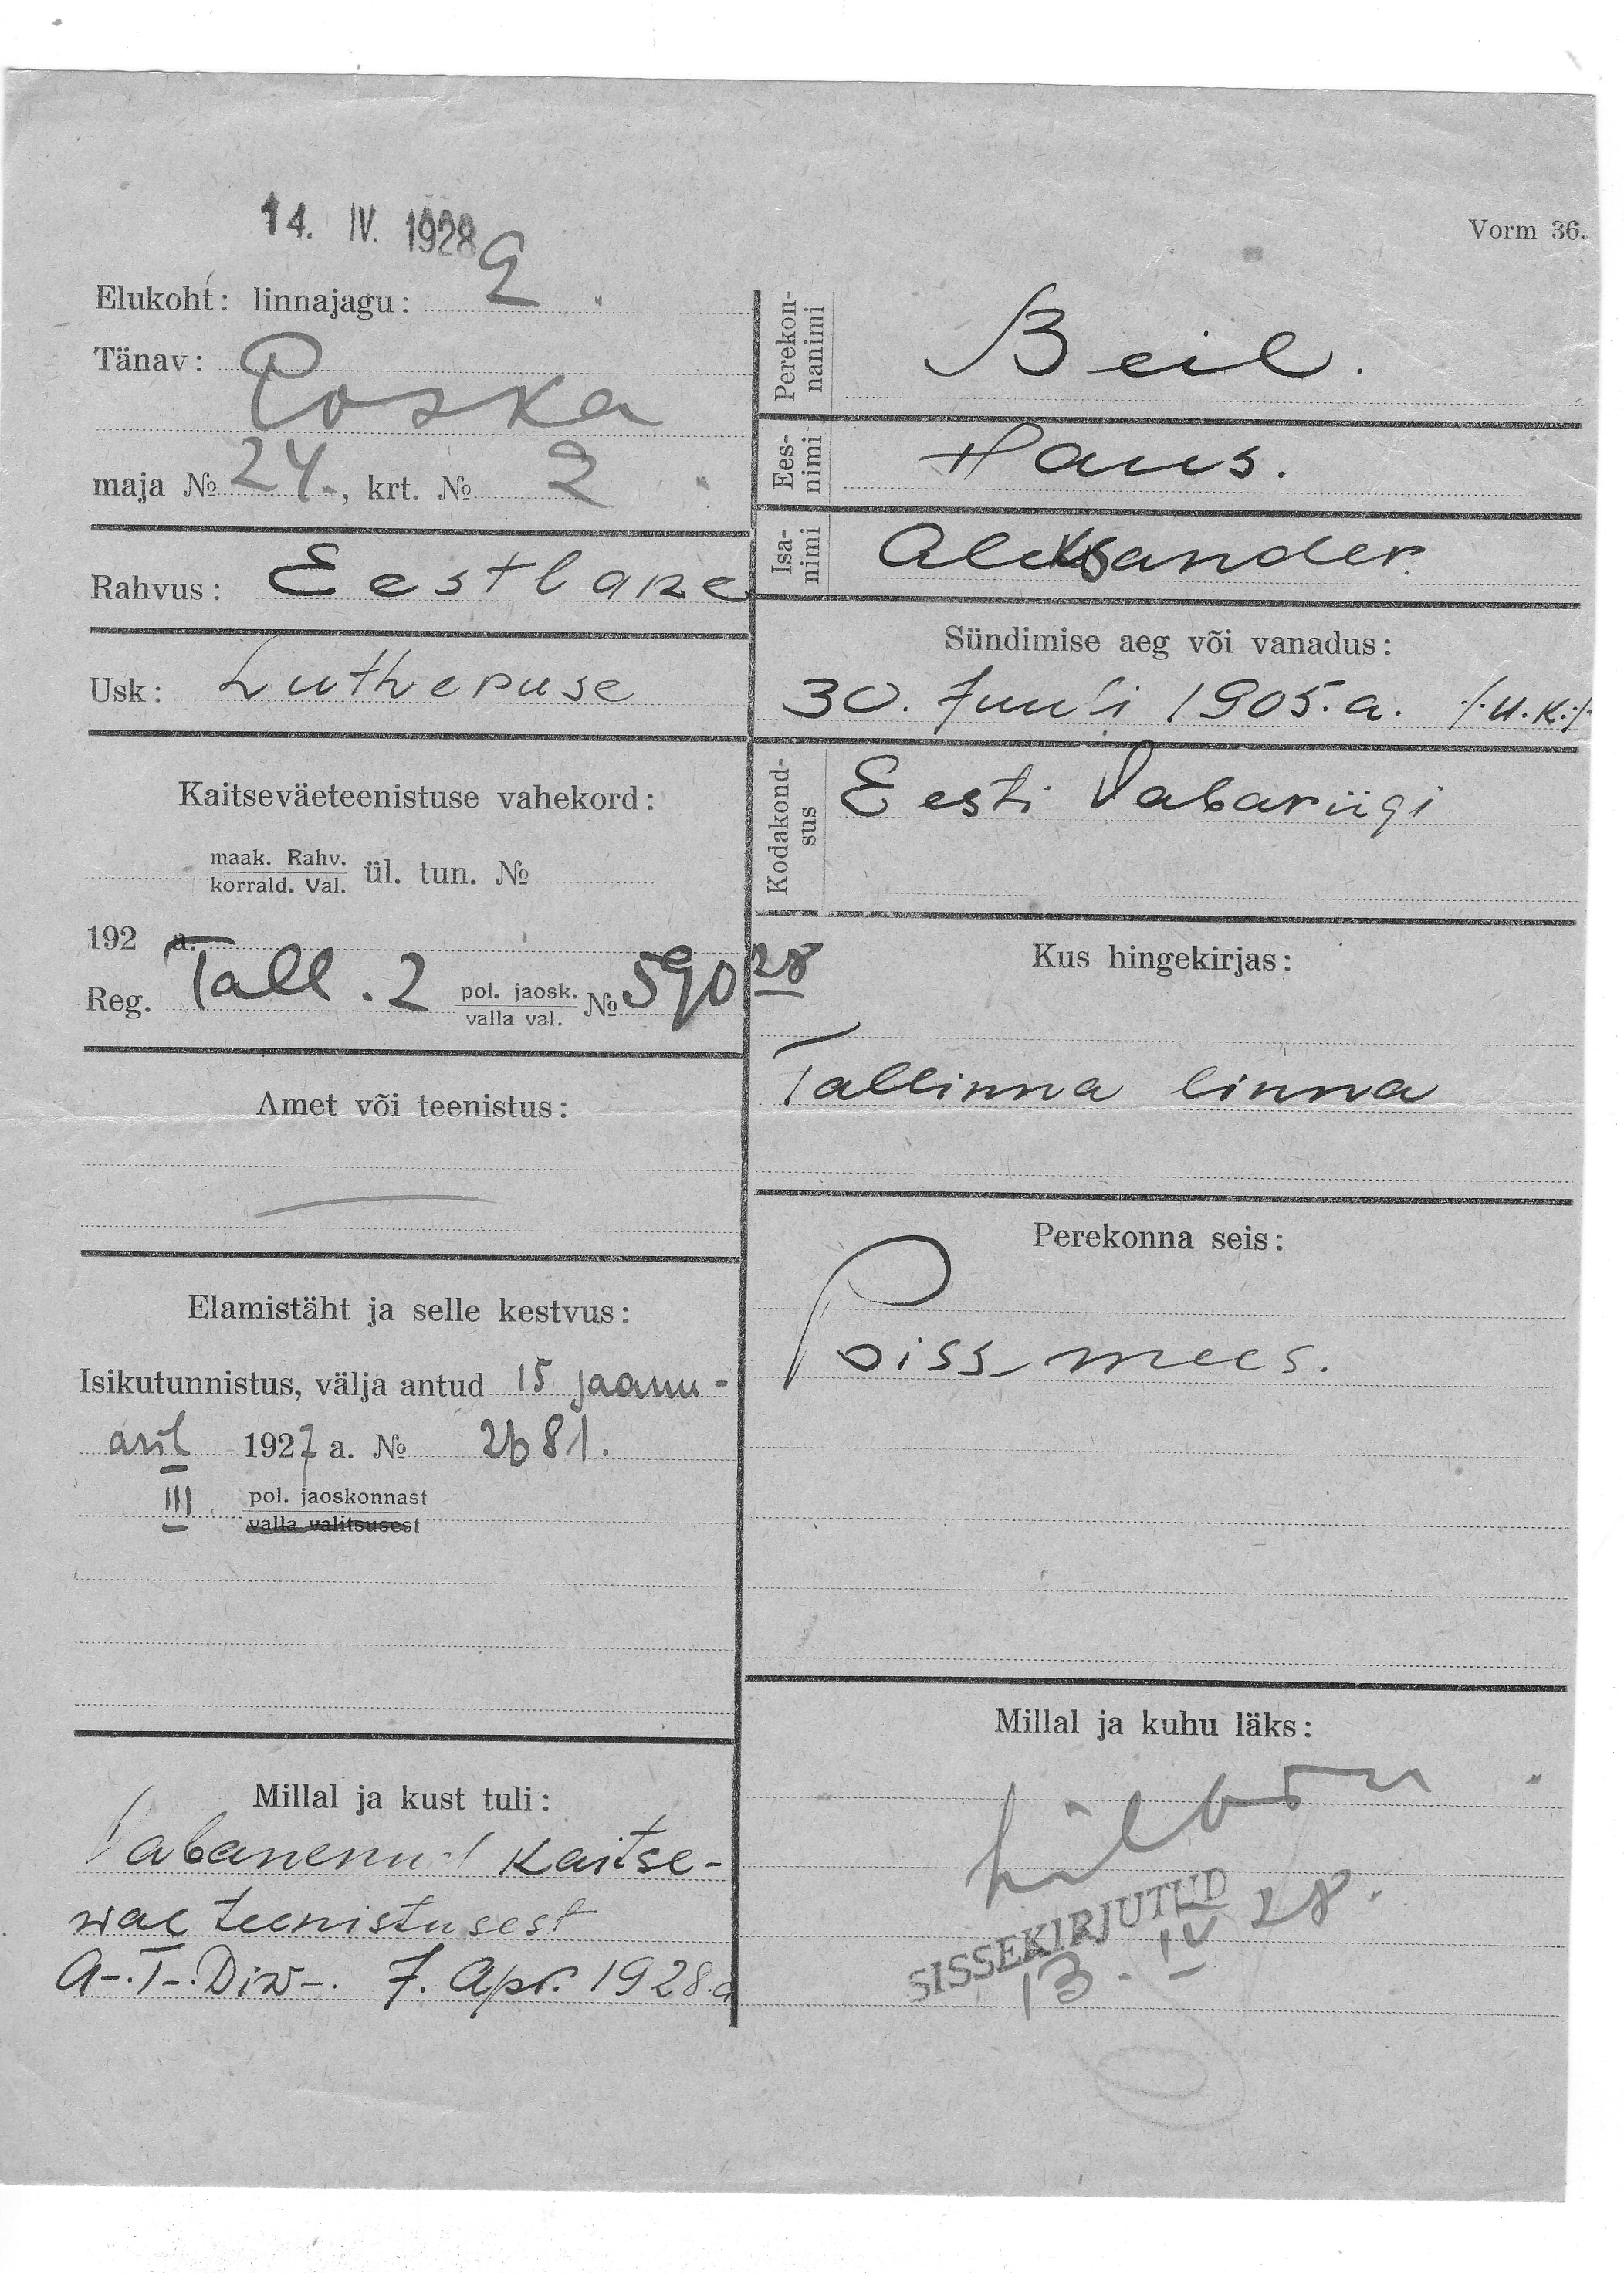 14. IV. 1928
Vorm 36.
Elukoht: linnajagu: 2.
Tänav: Poska
maja № 24., krt. № 2
Rahvus: Eestlane
Usk: Lutheruse
Kaitseväeteenistuse vahekord:
maak. Rahv.
korrald. Val. ül. tun. №
192 a.
Reg. Tall. 2 pol. jaosk. № 590 28
valla val.
Amet või teenistus:
Elamistäht ja selle kestvus:
Isikutunnistus, välja antud 15 jaanu-
aril 1927 a. № 2681.
III pol. jaoskonnast
valla valitsusest
Millal ja kust tuli:
Vabanenud Kaitse-
wae teenistusest
A-.T-.Diw-. 7. Apr. 1928.a
Perekon-
nanimi
Beil.
Ees-
nimi
Hans.
Isa-
nimi
Aleksander
Sündimise aeg või vanadus:
30. Juuli 1905. a. /.u.k./.
Kodakond-
sus
Eesti Vabariigi
Kus hingekirjas:
Tallinna linna
Perekonna seis:
Poissmees.
Millal ja kuhu läks:
SISSEKIRJUTUD
13. IV 28.